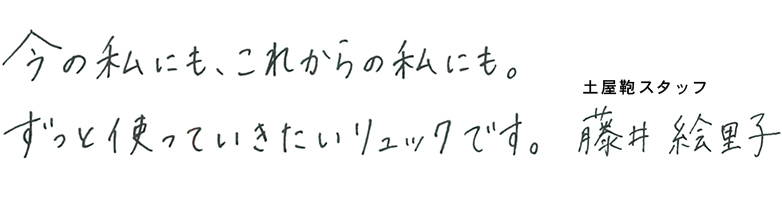 今の私にも、これからの私にも。
ずっと使っていきたいリュックです。
土屋鞄スタッフ
藤井 絵里子